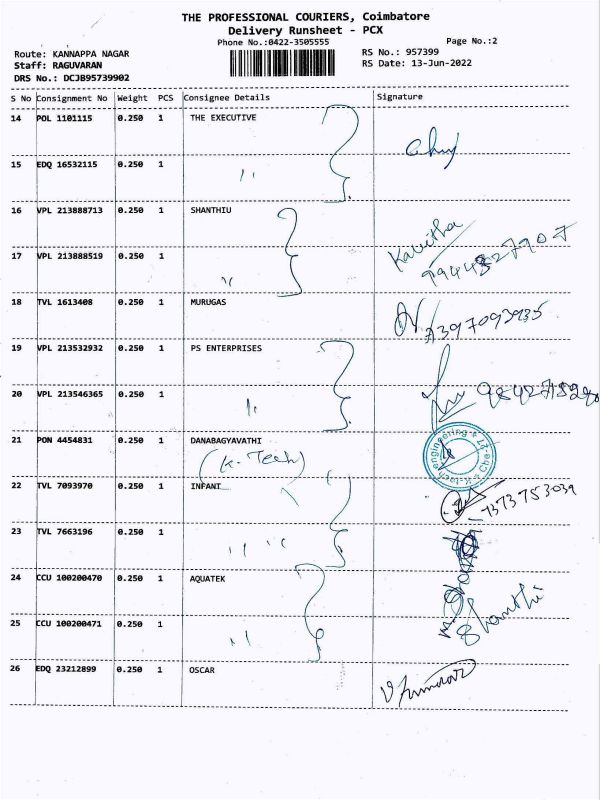 THE PROFESSIONAL COURIERS, Coimbatore
Delivery Runsheet - PCX
Phone No.:0422-3505555
Page No.:2
Route: KANNAPPA NAGAR
RS No.: 957399
Staff: RAGUVARAN
RS Date: 13-Jun-2022
DRS No.: DCJB95739902
S No Consignment No Weight PCS Consignee Details Signature
14 POL 1101115 0.250 1 THE EXECUTIVE
15 EDQ 16532115 0.250 1 "
16 VPL 213888713 0.250 1 SHANTHIU
Kavitha
17 VPL 213888519 0.250 1 "
18 TVL 1613408 0.250 1 MURUGAS
7397093935
19 VPL 213532932 0.250 1 PS ENTERPRISES
20 VPL 213546365 0.250 1 "
21 PON 4454831 0.250 1 DANABAGYAVATHI
(K-Tech)
22 TVL 7093970 0.250 1 INFANT
7373753039
23 TVL 7663196 0.250 1 " "
24 CCU 100200470 0.250 1 AQUATEK
Shanthi
25 CCU 100200471 0.250 1 "
26 EDQ 23212899 0.250 1 OSCAR